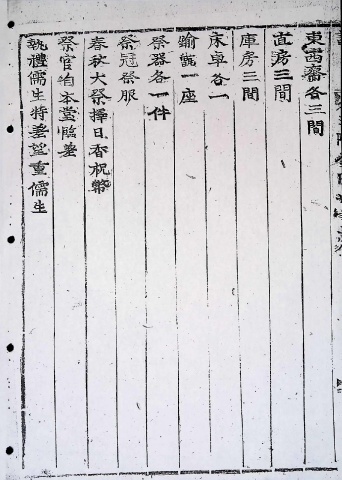 東西齋各三間
直房三間
庫房三間
床卓各一
鍮甑一座
祭器各一件
祭冠祭服
春秋大祭擇日香祝幣
祭官自本堂臨差
執禮儒生特差望重儒生